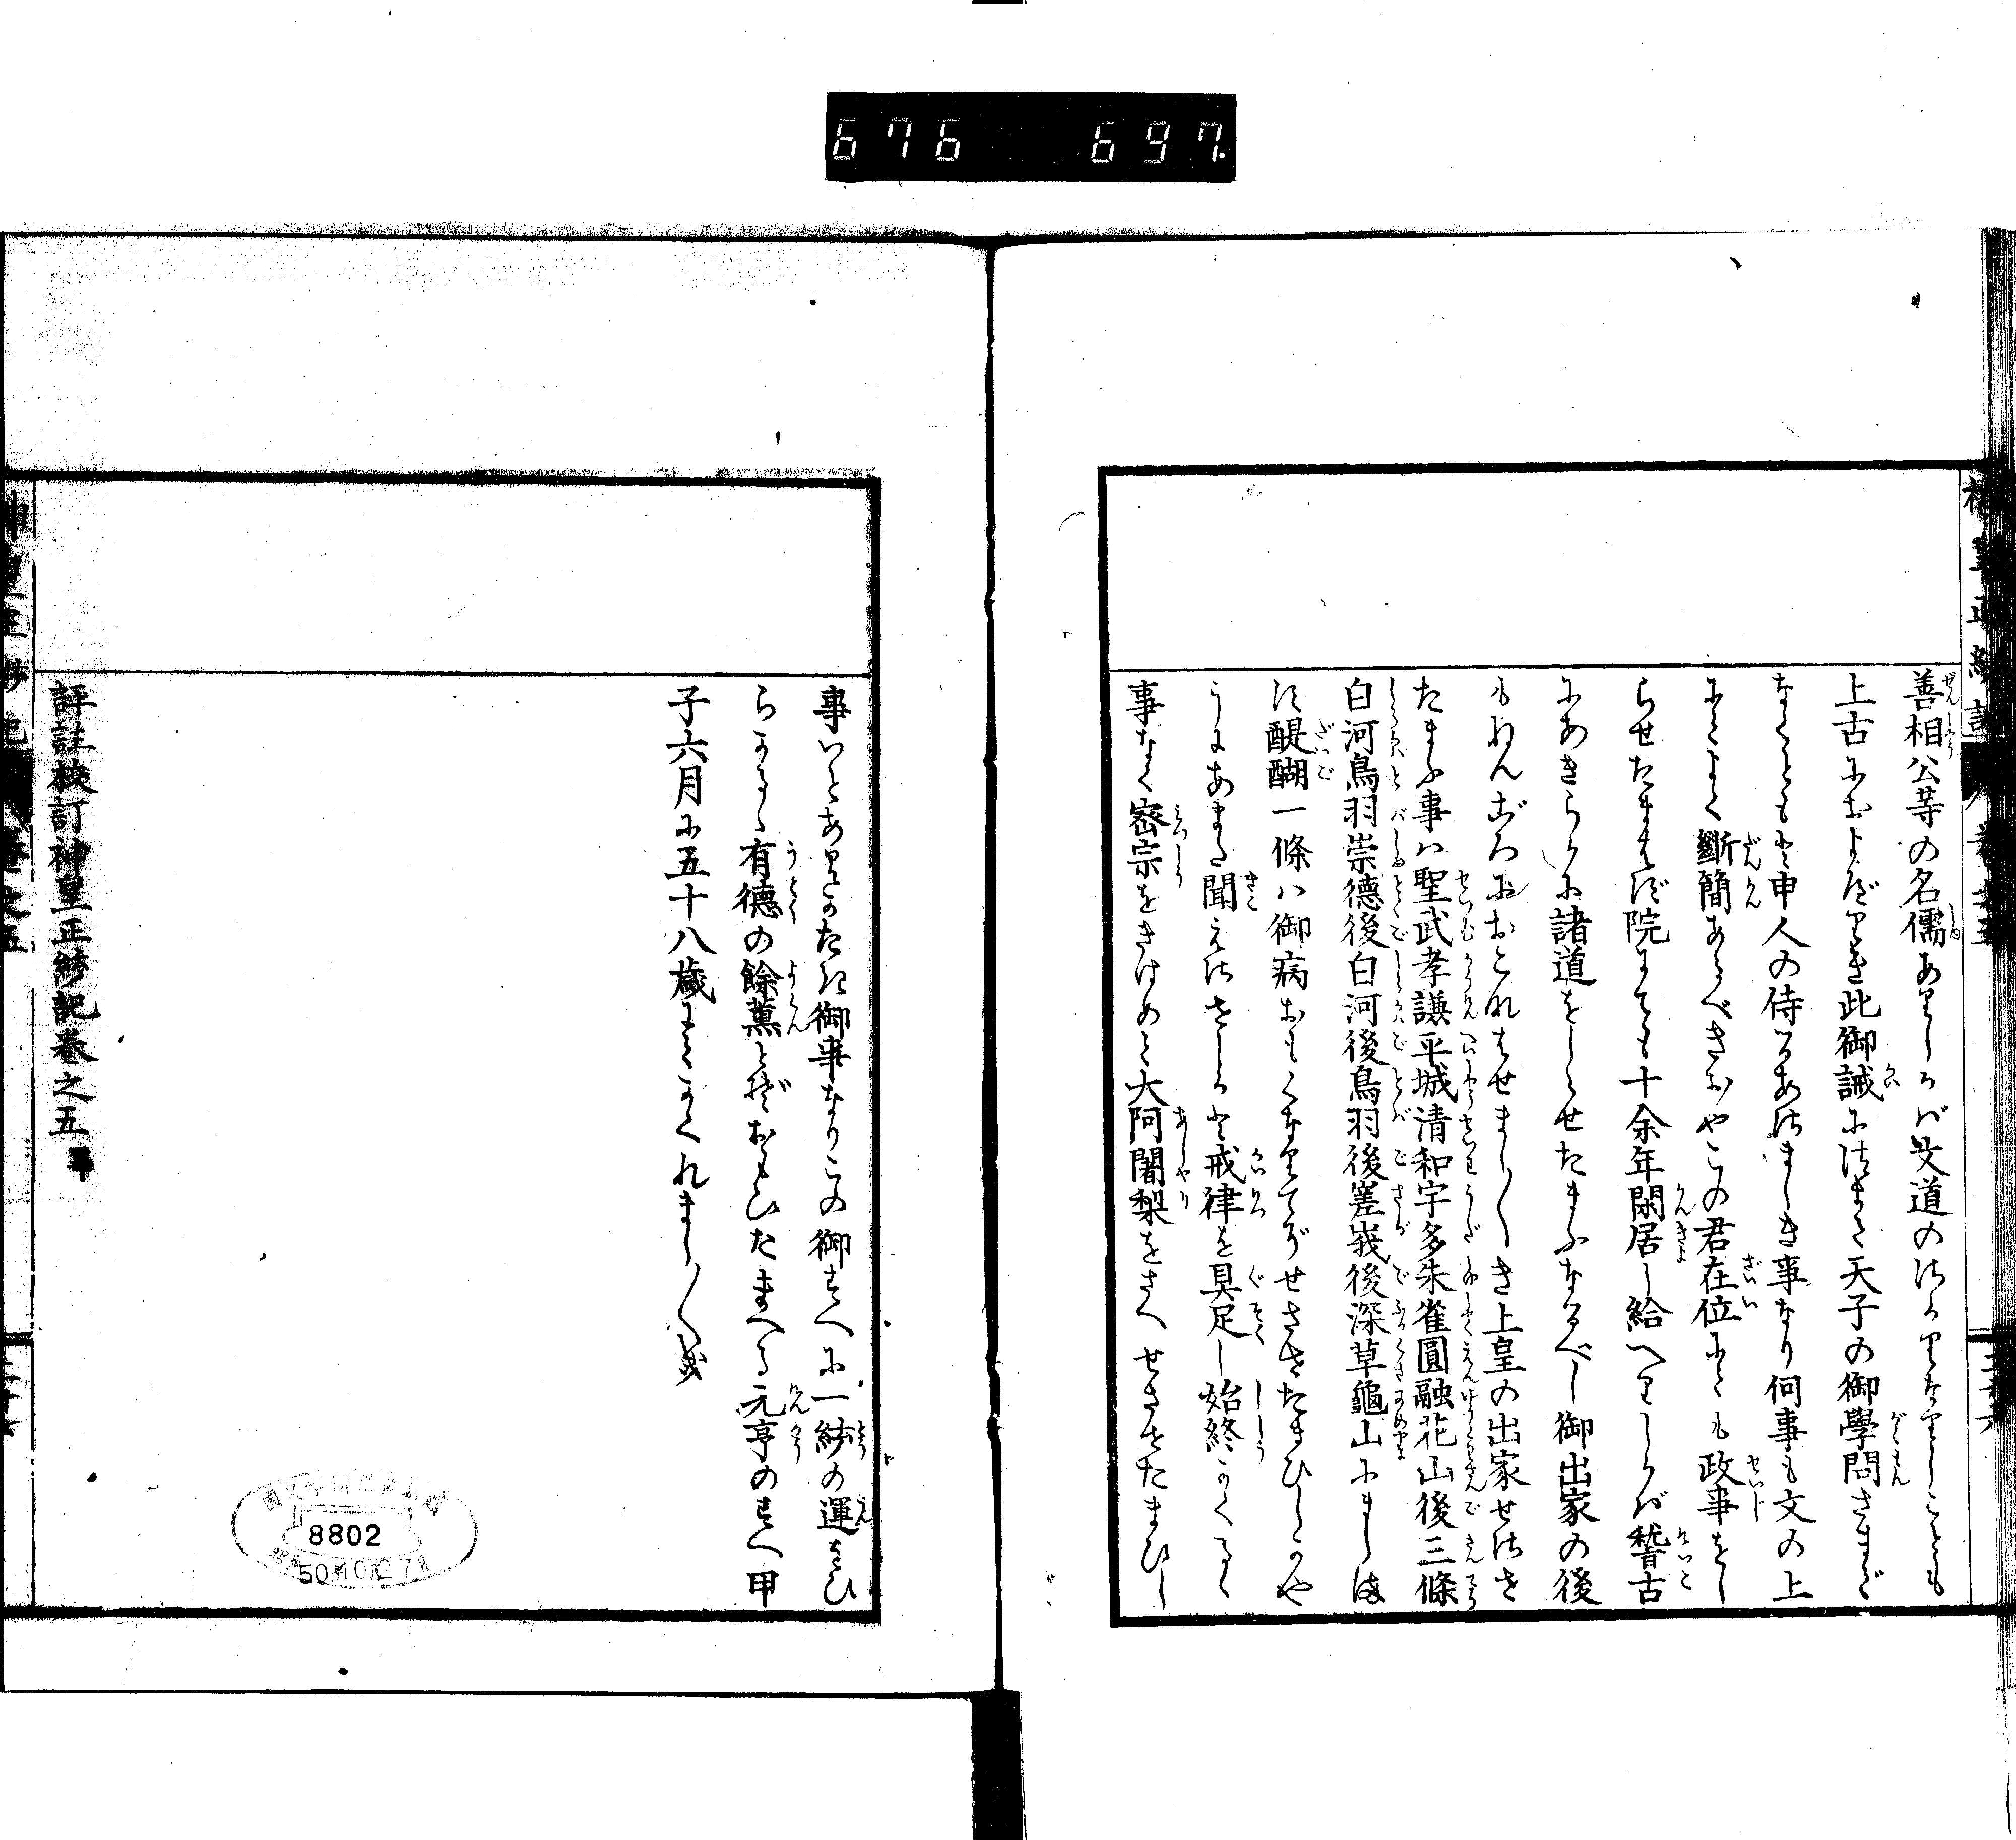 676 697.
善相公等の名儒ありしかば文道のさかりなりしことも
上古におよべりき此御誡につきて天子の御學問さまで
なくともと申人の侍るあさましき事なり何事も文の上
にてよく斷簡あるべきおやこの君在位にても政事をし
らせたまはず院にても十余年閑居し給へりしかば稽古
にあきらかに諸道をしらせたまふなるべし御出家の後
もねんごろにおこなはせまし〱き上皇の出家せさせ
たまふ事ハ聖武孝謙平城清和宇多朱雀圓融花山後三條
白河鳥羽崇德後白河後鳥羽後嵯峩後深草龜山にましま
す醍醐一條ハ御病おもくなりてぞせさせたまひしかや
うにあまた聞えさせしかど戒律を具足し始終かくる
事なく密宗をきはめて大阿闍梨をさへせさせたまひし
事いとありがたき御事なりこの御すゑに一統の運をひ
らかるゝ有德の餘薫とぞおもひたまへる元亨のすゑ甲
子六月に五十八歳にてかくれまし〱き
評註校訂神皇正統記卷之五
8802